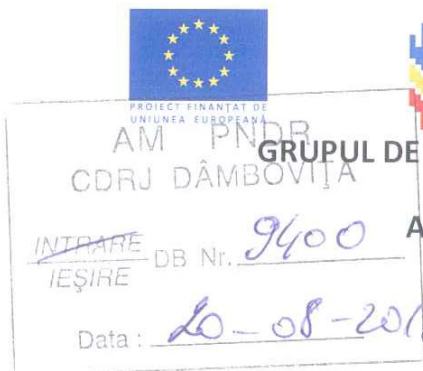 PROIECT FINANȚAT DE
UNIUNEA EUROPEANĂ
AM PNDR
GRUPUL DE
CDRJ DÂMBOVIȚA
INTRARE
IEȘIRE
DB Nr. 9400
A
Data: 20-08-201